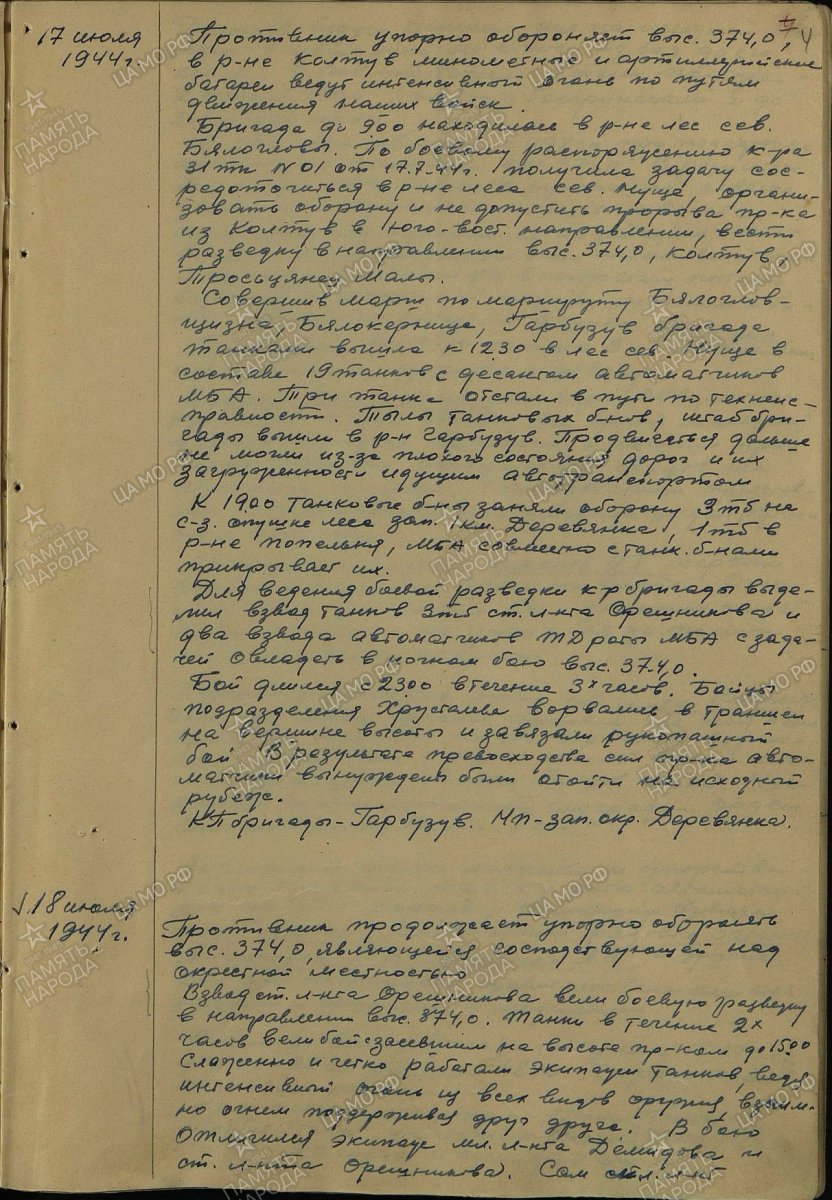 4
17 июля
1944 г.
Противник упорно обороняет выс. 374,0,
в р-не Колтув минометные и артиллерийские
батареи ведут интенсивный огонь по путям
движения наших войск.
Бригада до 9 00 находилась в р-не лес сев.
Бялогловы. По боевому распоряжению к-ра
31 тк №01 от 17.7.44г. получила задачу сос-
редоточиться в р-не леса сев. Нуще, органи-
зовать оборону и не допустить прорыва пр-ка
из Колтув в юго-вост. направлении, вести
разведку в направлении выс. 374,0, Колтув,
Тросьцянец Малы.
Совершив марш по маршруту Бялоглов-
щизна, Бялокерница, Гарбузув бригада
танками вышла к 12 30 в лес сев. Нуще в
составе 19 танков с десантом автоматчиков
МБА. Три танка отстали в пути по технеис-
правности. Тылы танковых б-нов, штаб бри-
гады вышли в р-н Гарбузув. Продвигаться дальше
не могли из-за плохого состояния дорог и их
загруженности идущим автотранспортом
К 19.00 танковые б-ны заняли оборону 3 тб на
с-з. опушке леса зап. 1 км. Деревянка, 1 тб в
р-не Попельня, МБА совместно с танк. б-нами
прикрывает их.
Для ведения боевой разведки к-р бригады выде-
лил взвод танков 3 тб ст. л-нта Орешникова и
два взвода автоматчиков ТД роты МБА с зада-
чей овладеть в ночном бою выс. 374,0.
Бой длился с 23 00 в течение 3х часов. Бойцы
подразделения Хрусталева ворвались в траншеи
на вершине высоты и завязали рукопашный
бой. В результате превосходства сил пр-ка авто-
матчики вынуждены были отойти на исходный
рубеж.
КП бригады - Гарбузув. НП - зап. окр. Деревянка.
18 июля
1944 г.
Противник продолжает упорно оборонять
выс. 374,0, являющейся господствующей над
окрестной местностью
Взвод ст. л-нта Орешникова вели боевую разведку
в направлении выс. 374,0. Танки в течение 2х
часов вели бой с засевшим на высоте пр-ком до 15.00
Слаженно и четко работали экипажи танков, ведя
интенсивный огонь из всех видов оружия, взаим-
но огнем поддерживая друг друга. В бою
отличился экипаж мл. л-нта Демидова и
ст. л-нта Орешникова. Сам мл. л-нт
ПАМЯТЬ
НАРОДА
ЦАМО.РФ